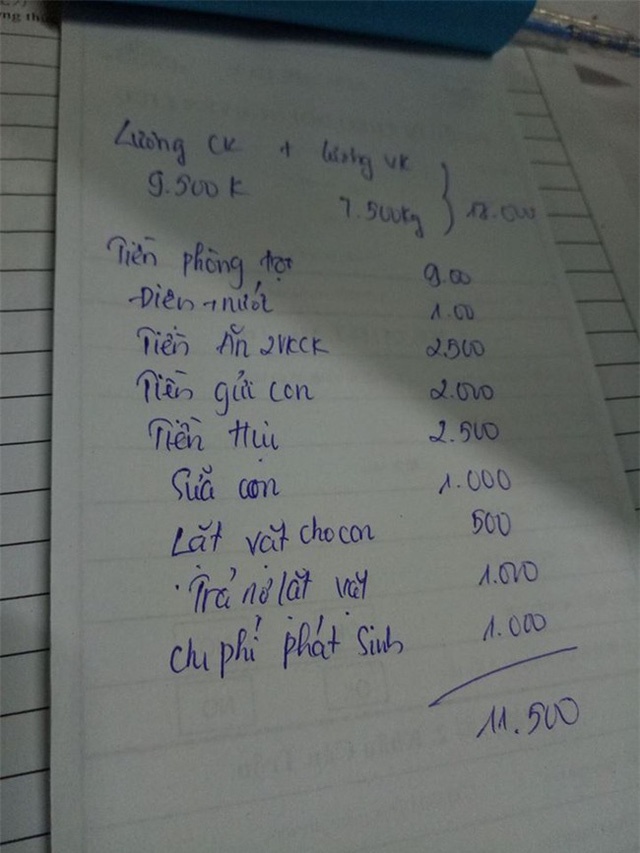 Lương CK + lương VK
9.500K
7.500Kg } 18.000
Tiền phòng trọ 9.00
Điên + nước 1.00
Tiền Ăn 2VKCK 2.500
Tiền gửi con 2.000
Tiền Hụi 2.500
Sữa con 1.000
Lăt văt cho con 500
Trả nợ lăt văt 1.000
Chi phí phát Sinh 1.000
11.500